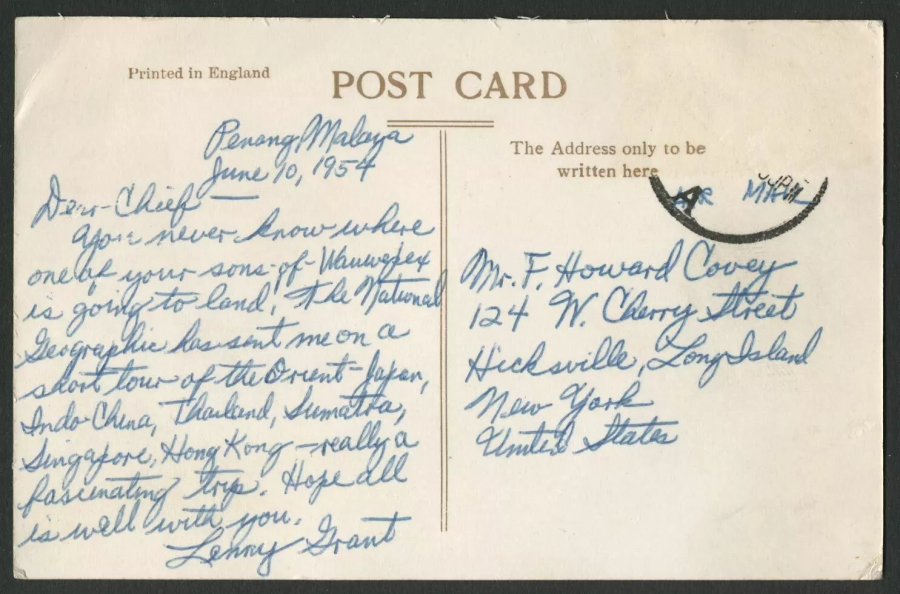 Printed in England
POST CARD
Penang, Malaya
June 10, 1954
Dear Chief —
You never know where
one of your sons-of-Wauwepex
is going to land. The National
Geographic has sent me on a
short tour of the Orient - Japan,
Indo China, Thailand, Sumatra,
Singapore, Hong Kong — really a
fascinating trip. Hope all
is well with you.
Lenny Grant
The Address only to be
written here
A
AIR MAIL
Mr. F. Howard Covey
124 W. Cherry Street
Hicksville, Long Island
New York
United States